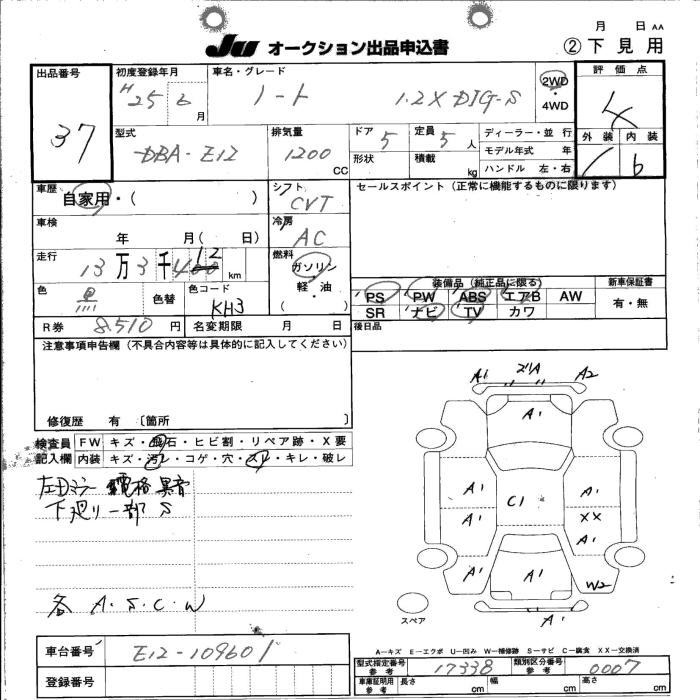 月 日 AA
JU オークション出品申込書 ②下見用
出品番号 初度登録年月 車名・グレード 評価点
37 H25 6月 ノート 1.2X DIG-S 2WD・4WD 4
型式 排気量 ドア 定員 ディーラー・並行 外装 内装
DBA-E12 1200CC 5 5人 モデル年式 年 b
形状 積載 kg ハンドル 左・右
車歴 シフト セールスポイント(正常に機能するものに限ります)
自家用・( ) CVT
車検 冷房
年 月( 日) AC
走行 燃料
13万3千4 12 km ガソリン
軽・油
( )
装備品(純正品に限る) 新車保証書
色 色替 色コード PS PW ABS エアB AW 有・無
黒 KH3 SR ナビ TV カワ
R券 8.510円 名変期限 月 日 後日品
注意事項申告欄(不具合内容等は具体的に記入してください)
修復歴 有〔箇所 〕
検査員記入欄 FW キズ・飛石・ヒビ割・リペア跡・X要
内装 キズ・汚レ・コゲ・穴・スレ・キレ・破レ
左Dミラー 電格 異音
下廻り一部 S
各 A・S・C・W
A1 A2
A1
A1 C1 A1
A1 XX
A1
A1 A1 W2
A1
スペア
A-キズ E-エクボ U-凹み W-補修跡 S-サビ C-腐食 XX-交換済
車台番号 E12-109601
登録番号
型式指定番号 参考 17338 類別区分番号 参考 0007
車庫証明用 参考 長さ cm 幅 cm 高さ cm